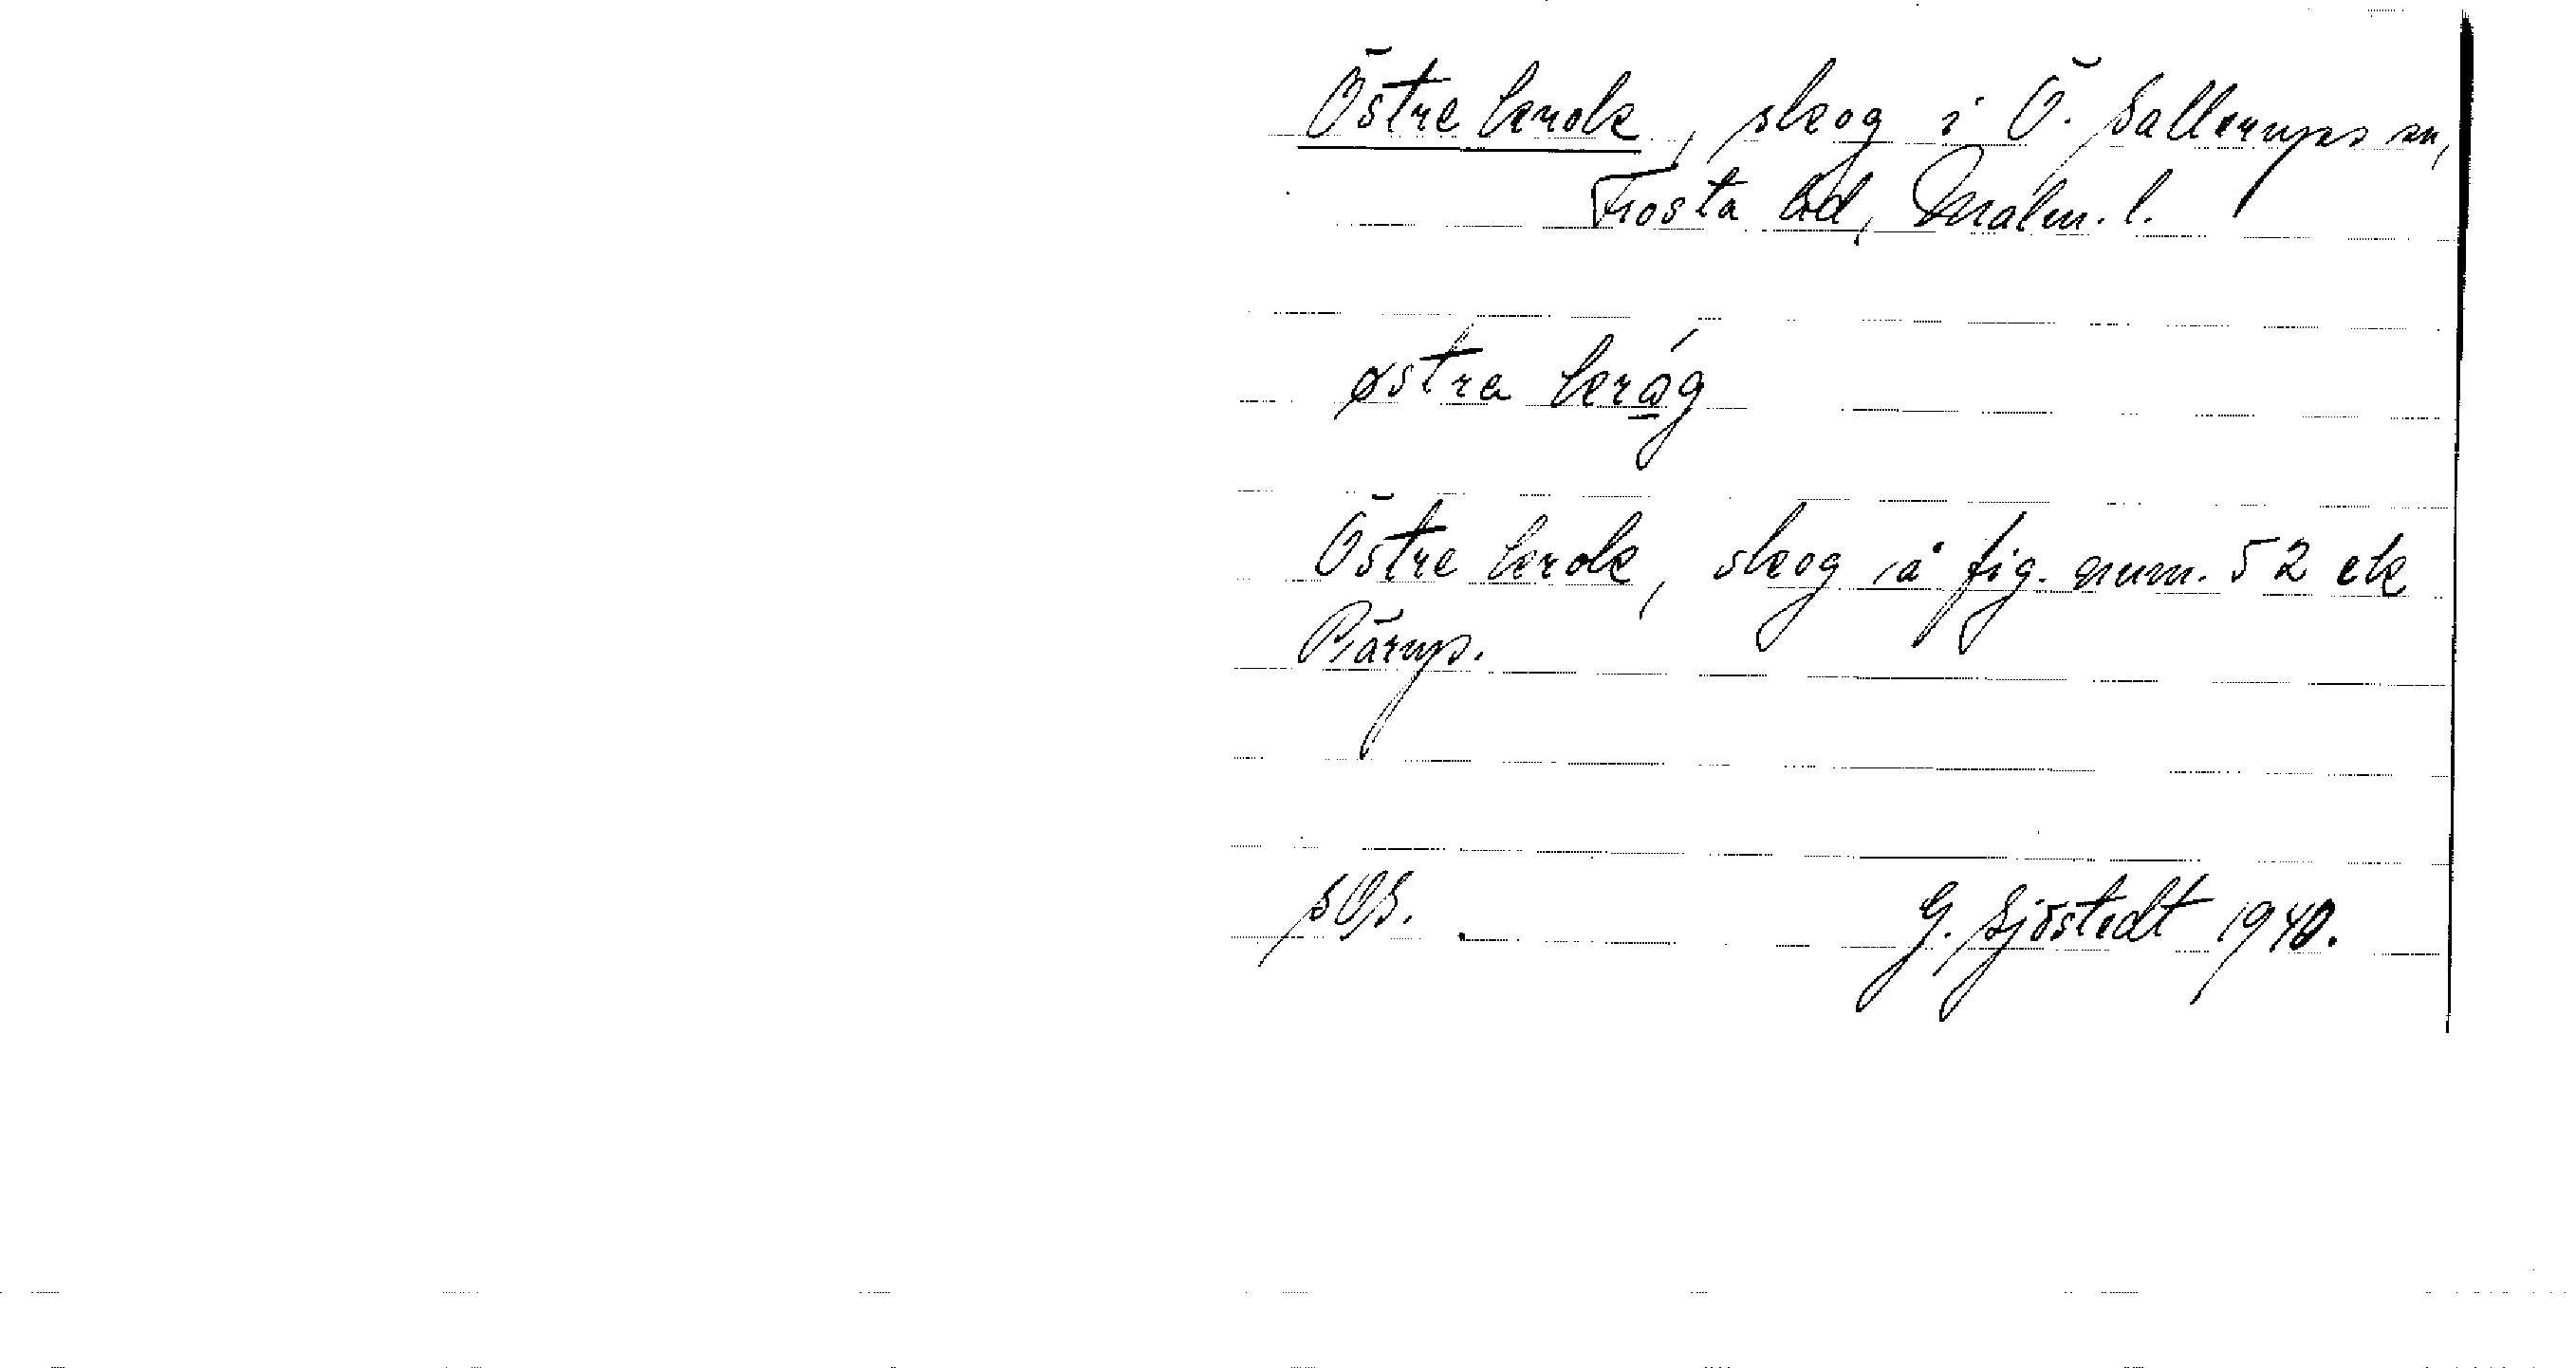 Östre krok, skog i Ö. Sallerups sn,
Frosta hd, Malm. l.
østra krǻg
Östre krok, skog å fig. num. 52 ek
Pärup.
SOS. G. Sjöstedt 1940.